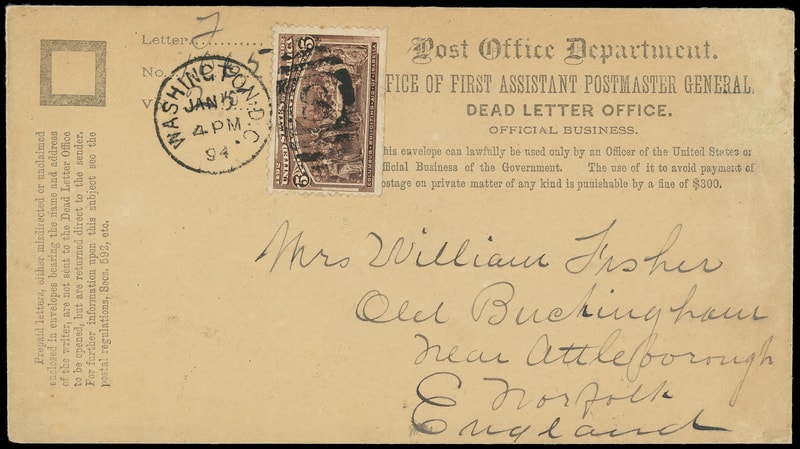 Letter, 7
No.
WASHINGTON, D.C.
JAN
4 PM
94
Post Office Department.
FICE OF FIRST ASSISTANT POSTMASTER GENERAL,
DEAD LETTER OFFICE.
OFFICIAL BUSINESS.
his envelope can lawfully be used only by an Officer of the United States or
fficial Business of the Government. The use of it to avoid payment of
ostage on private matter of any kind is punishable by a fine of $300.
Prepaid letters, either misdirected or unclaimed
enclosed in envelopes bearing the name and address
of the writer, are not sent to the Dead Letter Office
to be opened, but are returned direct to the sender.
For further information upon this subject see the
postal regulations, Secs. 592, etc.
Mrs William Fisher
Old Buckingham
Near Attleborough
Norfolk
England